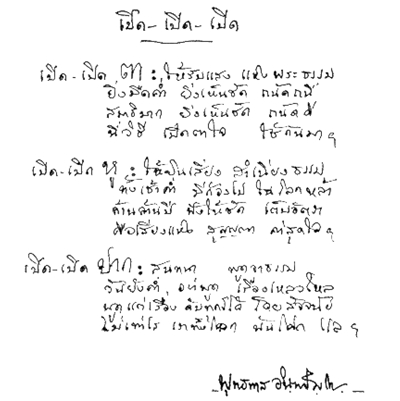 เปิด - เปิด - เปิด
เปิด - เปิด ตา : ให้รับแสง แห่งพระธรรม
ยิ่งมืดค่ำ ยิ่งเห็นชัด ถนัดถนี่
สมาธิมาก ยิ่งเห็นชัด ถนัดดี
นี่วิธี เปิดตาใจ ใช้กันมา ฯ
เปิด - เปิด หู : ให้ยินเสียง สำเนียงธรรม
ทั้งเช้าค่ำ มีก้องไป ในโลกหล้า
ล้านล้านปี ฟังให้ชัด เต็มอัตรา
คือเสียงแห่ง สุญญตา ค่าสุดใจ ฯ
เปิด - เปิด ปาก : สนทนา พูดจาธรรม
วันยังค่ำ อย่าพูด เรื่องเหลวไหล
พูดแต่เรื่อง ดับทุกข์ได้ โดยสัจจนัย
ไม่เท่าไร เราทั้งโลก พ้นโศก แล ฯ
พุทธทาส อินทปัญโญ